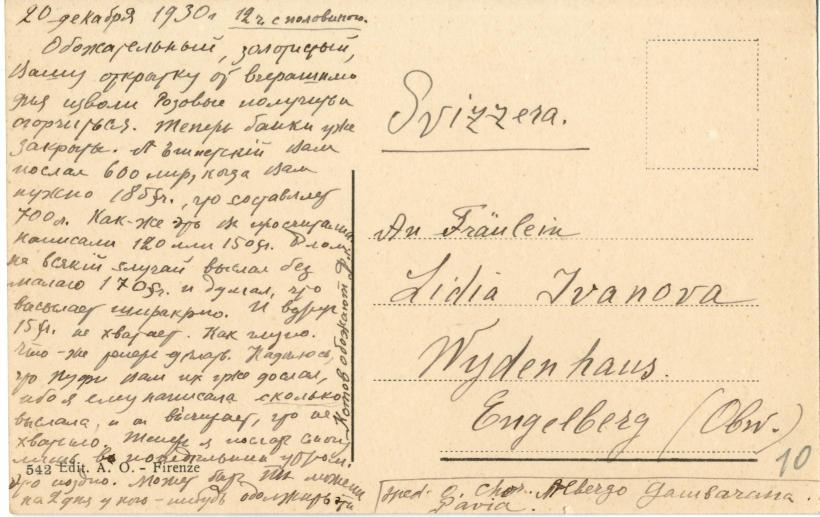 20 декабря 1930г 12 ч с половиною.
Обожательный, золотистый,
Вашу открытку от вчерашняго
дня изволи Розовые получить и
огорчиться. Теперь банки уже
закрыты. А Египетскій Вам
послал 600 лир, когда Вам
нужно 185fr., что составляет
700 л. Как-же это Вы просчитались
написали 120 или 150fr.
на всякій случай выслал без
малаго 170fr. и думал, что
высылает широко. И вдруг
15fr. не хватает. Как глупо.
Что-же теперь делать. Надеюсь,
что Вам их уже дослал,
ибо я ему написала сколько
выслала, и он высчитает, что не
хватило. Теперь я
лишь в понедельник утром.
Это поздно. Может быть Вы можете
на 2 дня у кого-нибудь одолжить
Котов обожают
542 Edit. A. O. - Firenze
Svizzera.
An Fräulein
Lidia Ivanova
Wydenhaus.
Engelberg (Obw.)
10
sped. Albergo Gambarana.
Pavia.